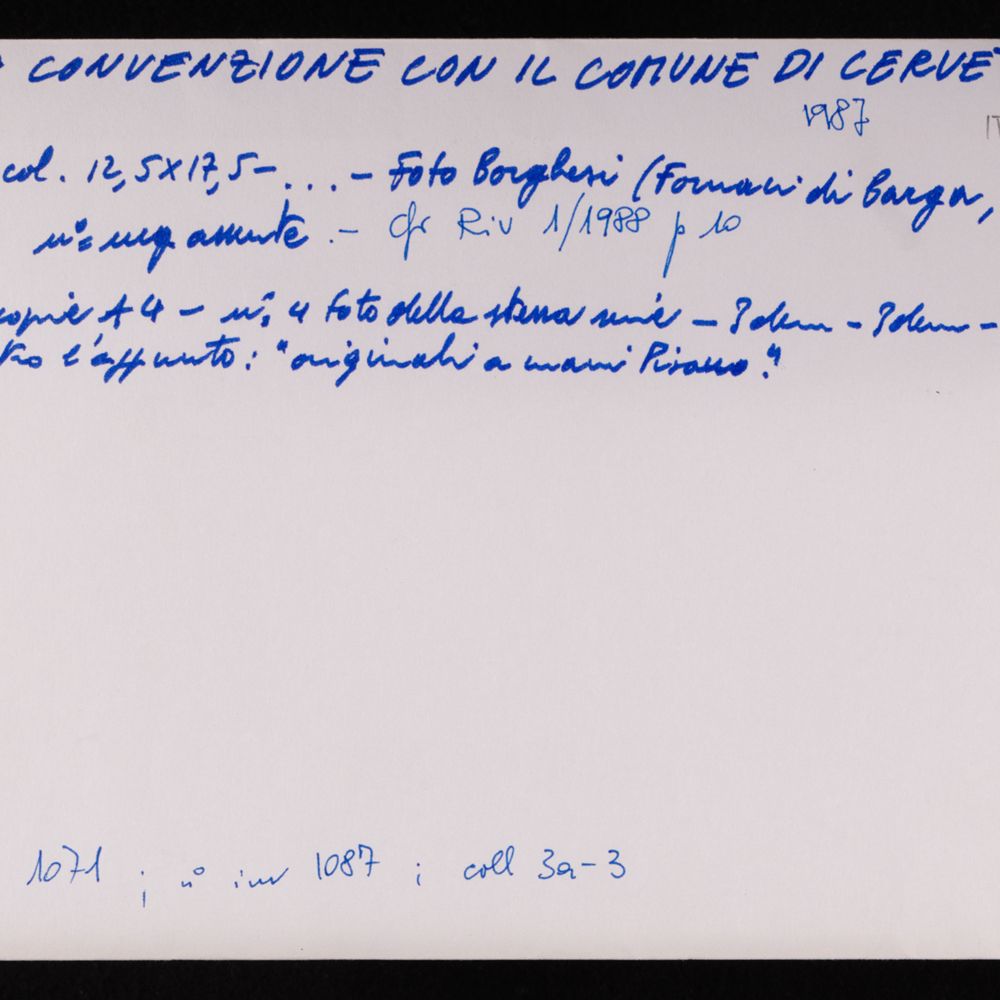 CONVENZIONE CON IL COMUNE DI CERVET
1987
IT
col. 12,5x17,5- ... - Foto Borghesi (Fornaci di Barga,
n° neg. assente .- Cfr Riv 1/1988 p 10
copie A4 - n° 4 foto della stessa serie - Idem - Idem -
tro l'appunto: "originali a mani Pisano."
1071 ; n° inv 1087 ; coll 3a-3